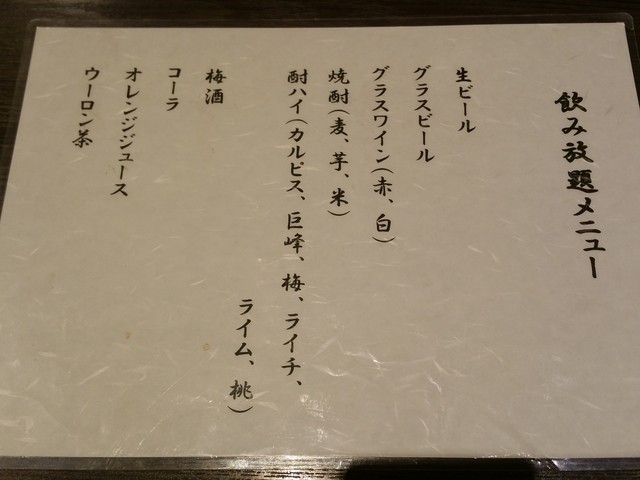 飲み放題メニュー
生ビール
グラスビール
グラスワイン(赤、白)
焼酎(麦、芋、米)
酎ハイ(カルピス、巨峰、梅、ライチ、
ライム、桃)
梅酒
コーラ
オレンジジュース
ウーロン茶